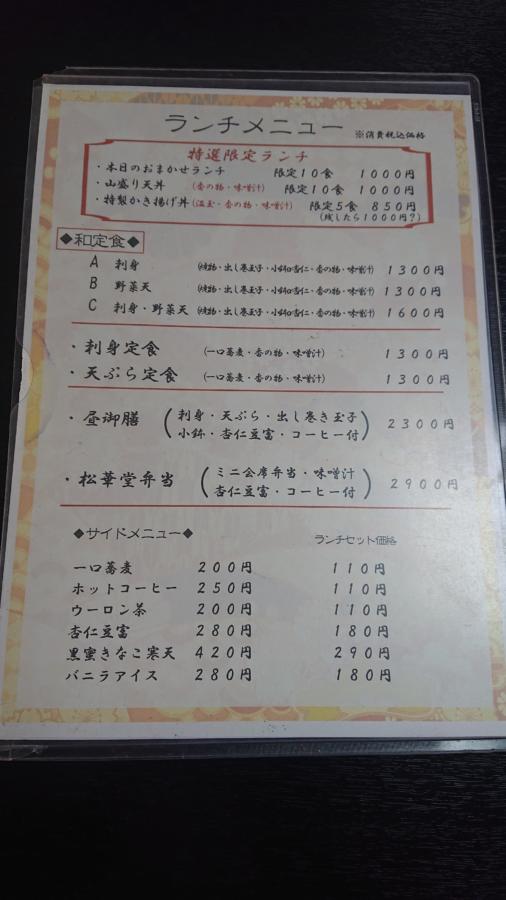 ランチメニュー ※消費税込価格
特選限定ランチ
・本日のおまかせランチ 限定10食 1000円
・山盛り天丼 (香の物・味噌汁) 限定10食 1000円
・特製かき揚げ丼(温玉・香の物・味噌汁) 限定5食 850円
(残したら1000円?)
◆和定食◆
A 刺身 (焼物・出し巻玉子・小鉢or杏仁・香の物・味噌汁) 1300円
B 野菜天 (焼物・出し巻玉子・小鉢or杏仁・香の物・味噌汁) 1300円
C 刺身・野菜天 (焼物・出し巻玉子・小鉢or杏仁・香の物・味噌汁) 1600円
・刺身定食 (一口蕎麦・香の物・味噌汁) 1300円
・天ぷら定食 (一口蕎麦・香の物・味噌汁) 1300円
・昼御膳 (刺身・天ぷら・出し巻き玉子 2300円
小鉢・杏仁豆富・コーヒー付)
・松華堂弁当 (ミニ会席弁当・味噌汁 2900円
杏仁豆富・コーヒー付)
◆サイドメニュー◆ ランチセット価格
一口蕎麦 200円 110円
ホットコーヒー 250円 110円
ウーロン茶 200円 110円
杏仁豆富 280円 180円
黒蜜きなこ寒天 420円 290円
バニラアイス 280円 180円